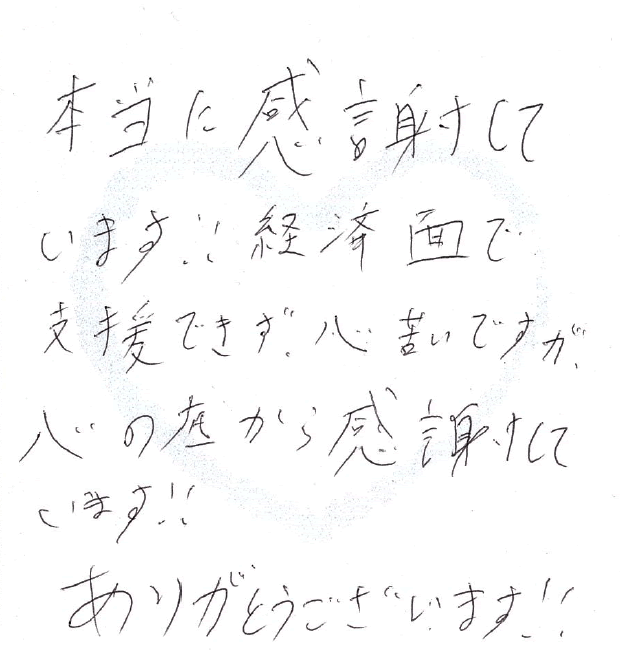 本当に感謝して
います!! 経済面で
支援できず、心苦いですが、
心の底から感謝して
います!!
ありがとうございます!!